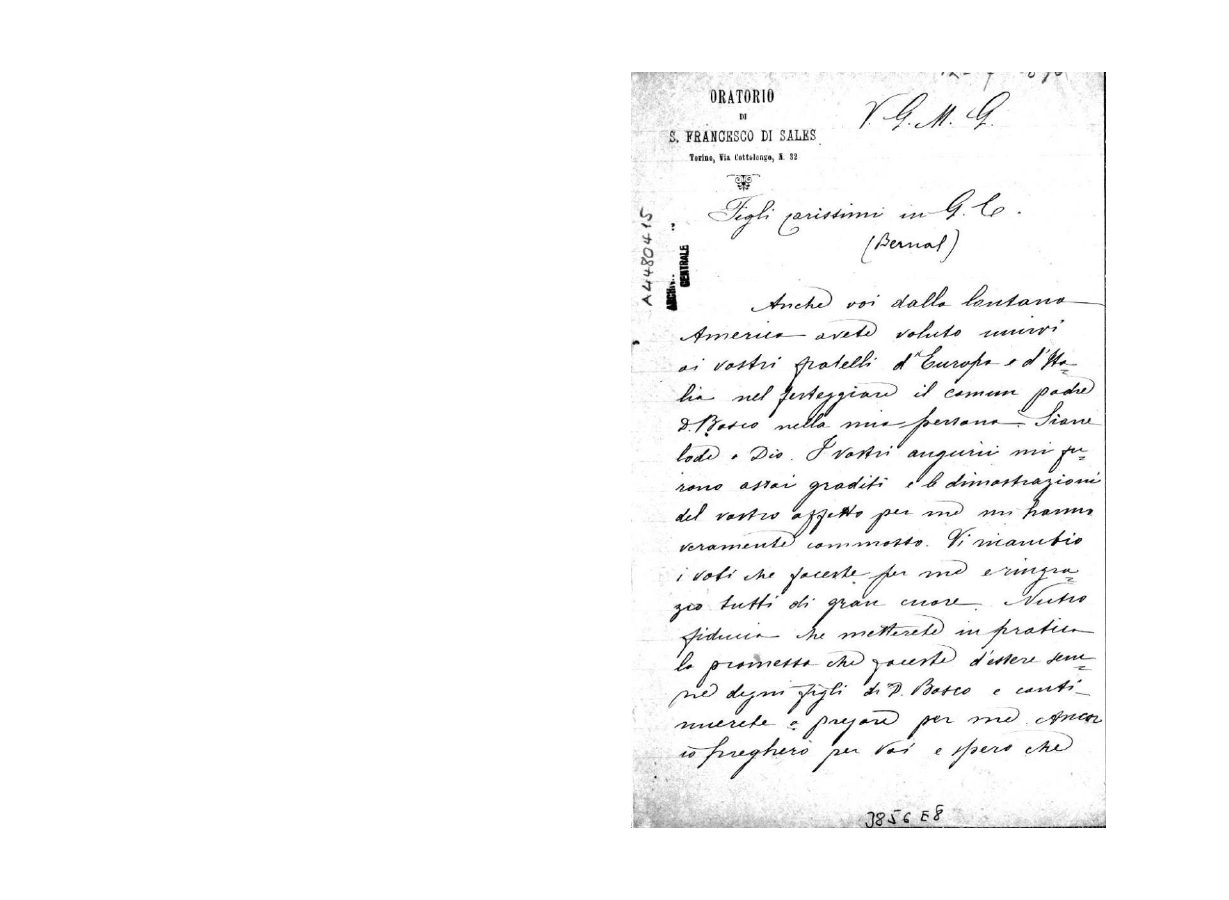 ORATORIO
DI
S. FRANCESCO DI SALES
Torino, Via Cottolengo, N. 32
V. G. M. G.
Figli carissimi in G. C.
(Bernal)
A4480415
CENTRALE
Anche voi dalla lontana
America avete voluto unirvi
ai vostri fratelli d'Europa e d'Ita=
lia nel festeggiare il comun padre
D. Bosco nella mia persona. Siane
lode a Dio. I vostri augurii mi fu=
rono assai graditi e le dimostrazioni
del vostro affetto per me mi hanno
veramente commosso. Vi ricambio
i voti che faceste per me e ringra=
zio tutti di gran cuore. Nutro
fiducia che metterete in pratica
la promessa che faceste d'essere sem=
pre degni figli di D. Bosco e conti-
nuerete a pregare per me. Ancor
io pregherò per voi e spero che
3856 E8